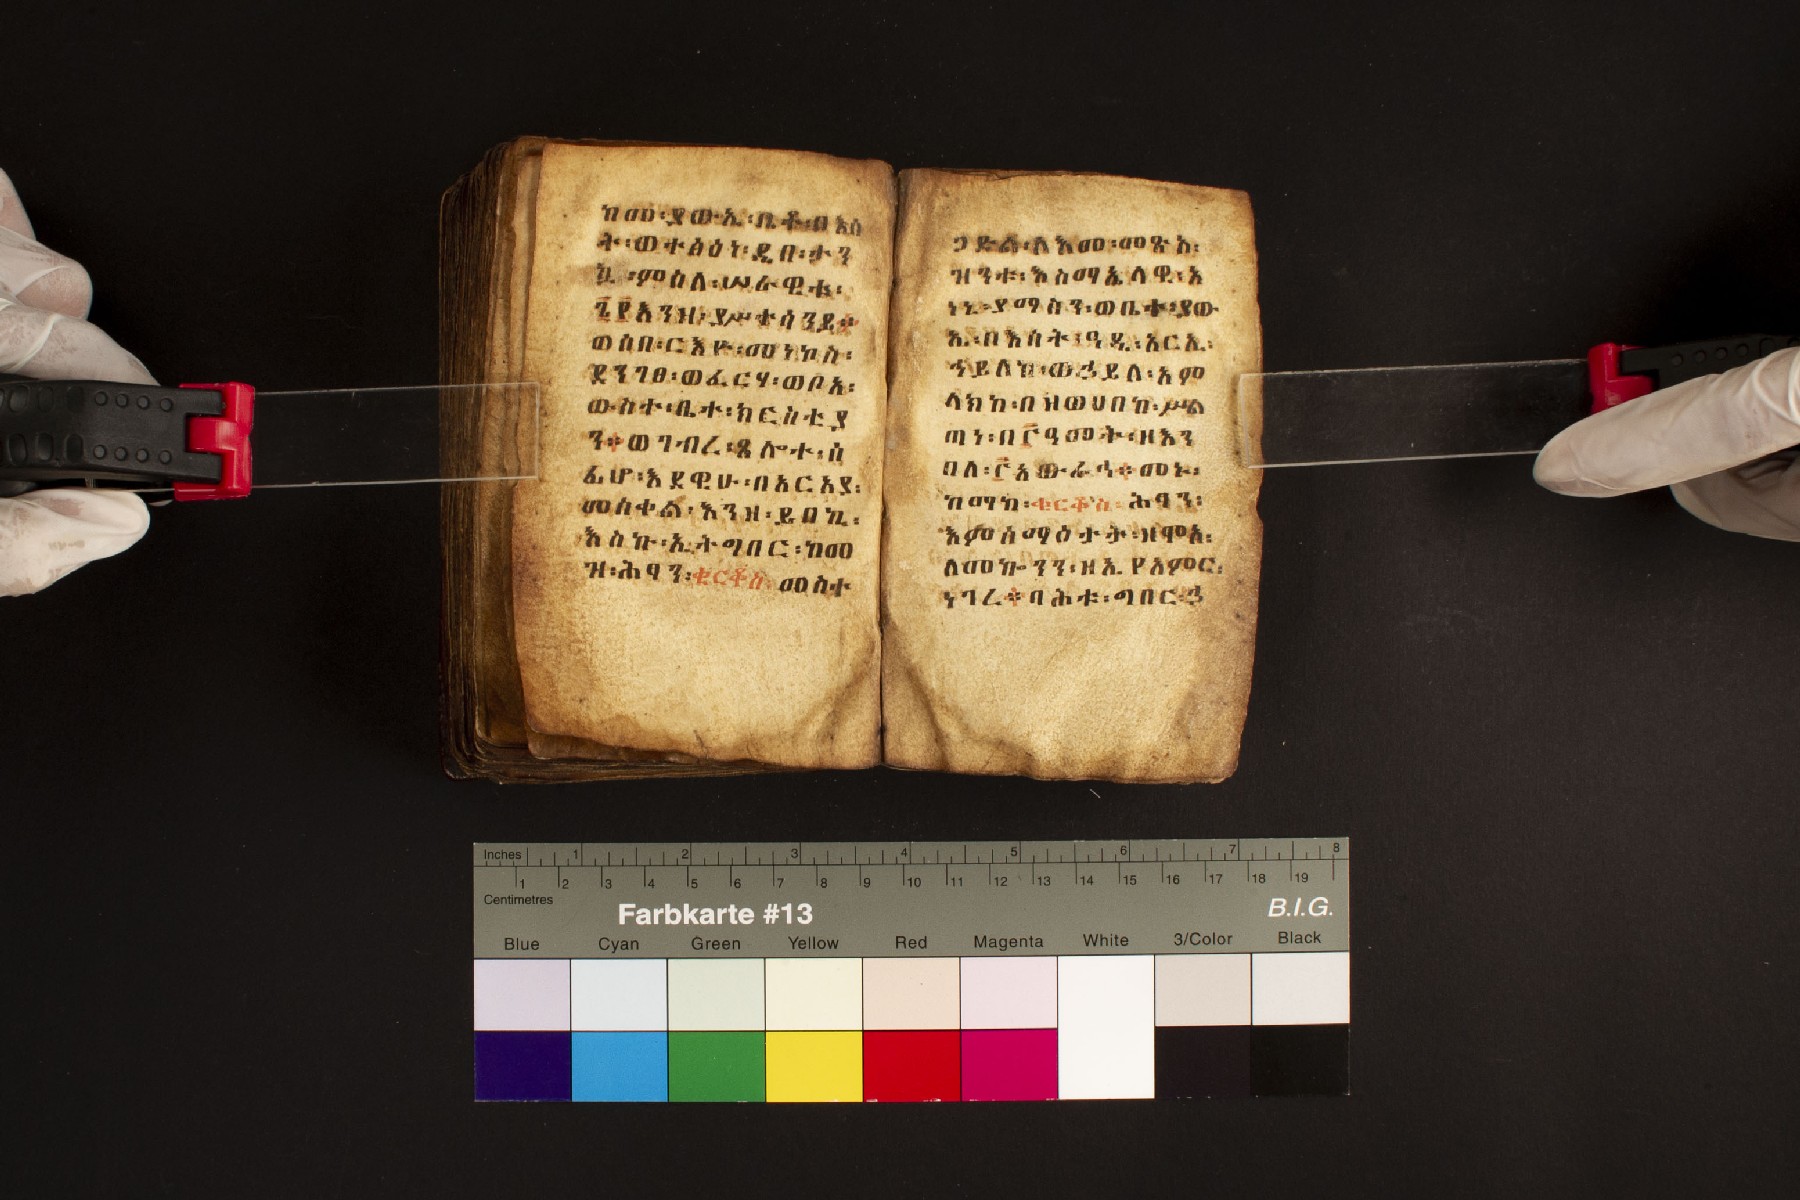 ከመ፡ያውኢ፡ቤቶ፡በእሳ
ት፡ወተፅዕነ፡ዲበ፡ታን
ኳ፡ምስለ፡ሠራዊቱ፡
፶፻እንዘ፡ያሥተሳንይ፨
ወሶበ፡ርእዮ፡መነኮስ፡
ደንገፀ፡ወፈርሃ፡ወቦአ፡
ውስተ፡ቤተ፡ክርስቲያ
ን፨ወገብረ፡ጸሎተ፡ሰ
ፊሆ፡እደዊሁ፡በአርአያ፡
መስቀል፡እንዘ፡ይብኪ፡
እስኩ፡ኢትግበር፡ከመ
ዝ፡ሕፃን፡ቂርቆስ፡መስተ
ጋድል፡ለእመ፡መጽአ፡
ዝንቱ፡እስማኤላዊ፡አ
ነኒ፡ያማስን፡ወቤተ፡ያው
ኢ፡በእሳት፡ዓዲ፡አርኢ፡
ኀይለከ፡ወኃይለ፡አም
ላክከ፡በዝወሀበከ፡ሥል
ጣነ፡በ፫ዓመት፡ዘእን
በለ፡፫አውራኅ፨መኑ፡
ከማከ፡ቂርቆስ፡ሕፃን፡
እምሰማዕታት፡ዝሞአ፡
ለመኰንን፡ዘኢየአምር፡
ነገረ፨ባሕቱ፡ግበር፡ኃ
Inches 1 2 3 4 5 6 7 8
1 2 3 4 5 6 7 8 9 10 11 12 13 14 15 16 17 18 19
Centimetres
Farbkarte #13 B.I.G.
Blue Cyan Green Yellow Red Magenta White 3/Color Black